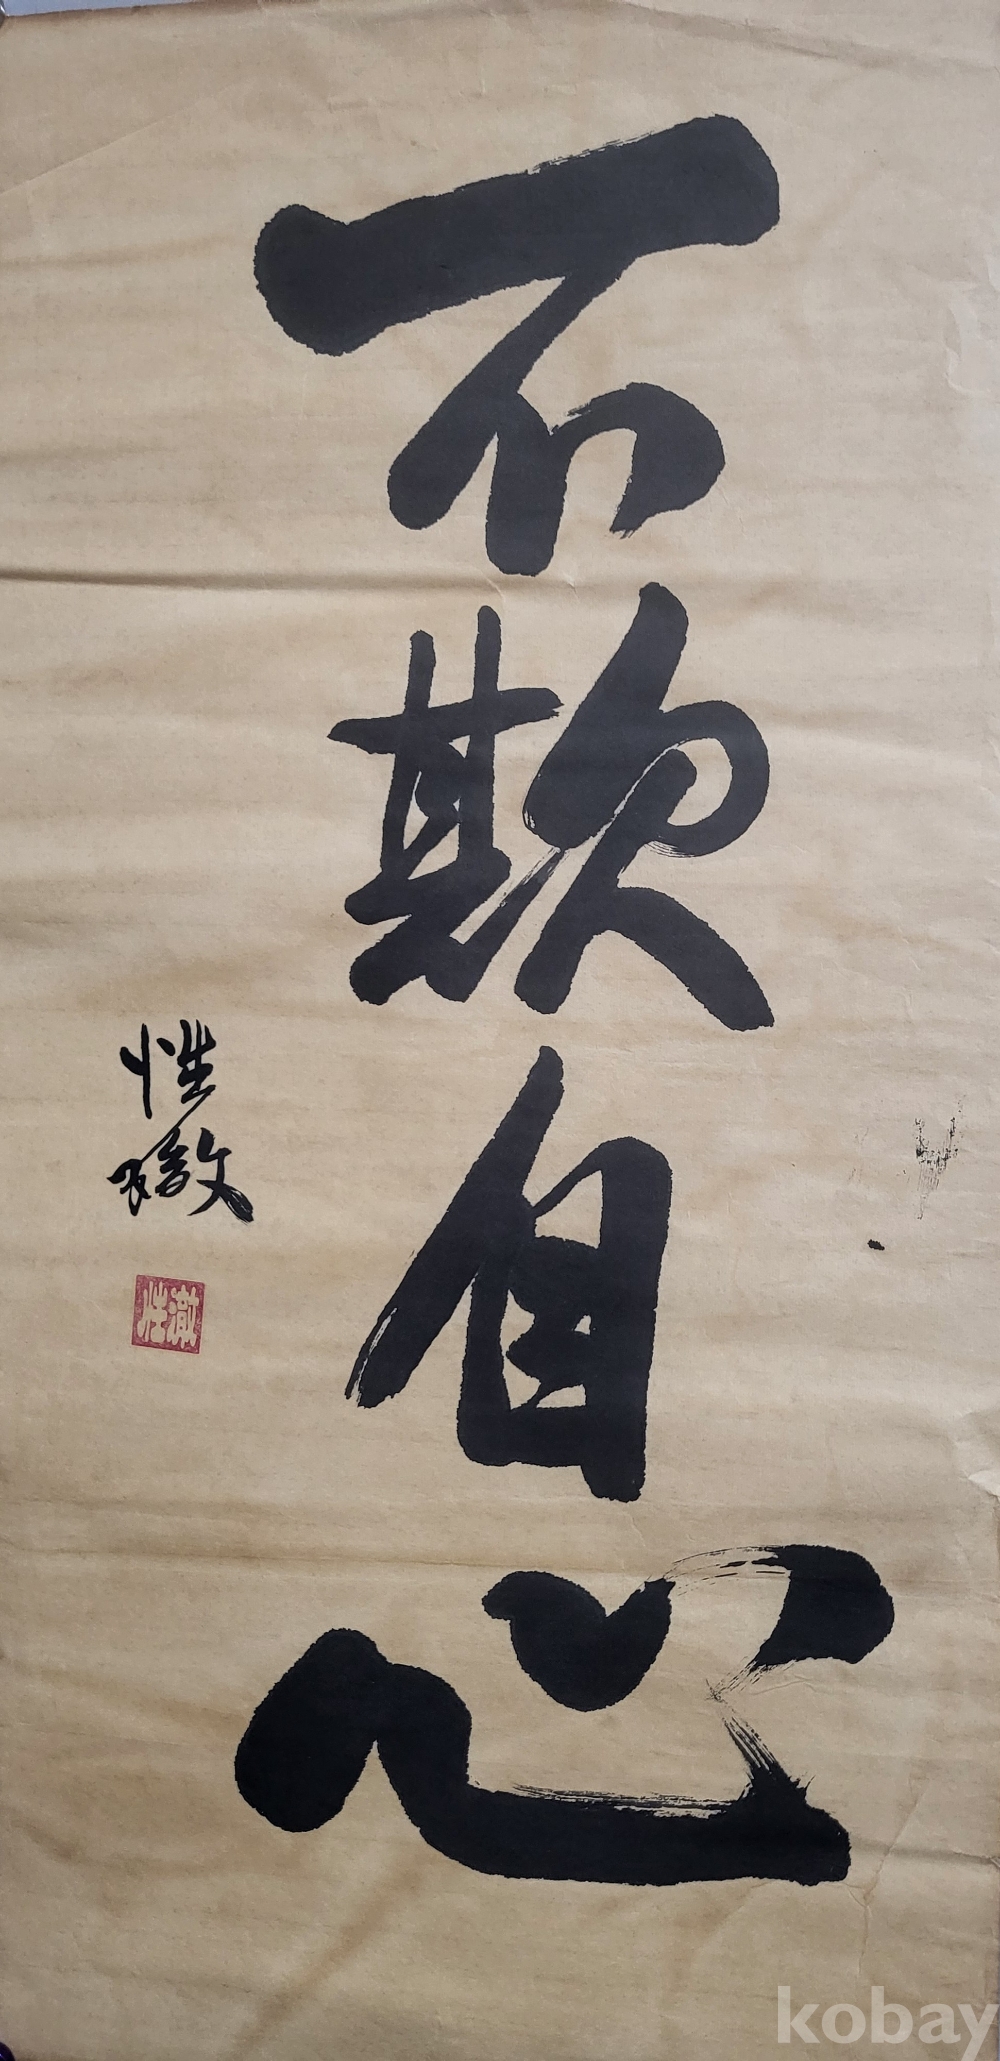 不欺自心
性徹
kobay